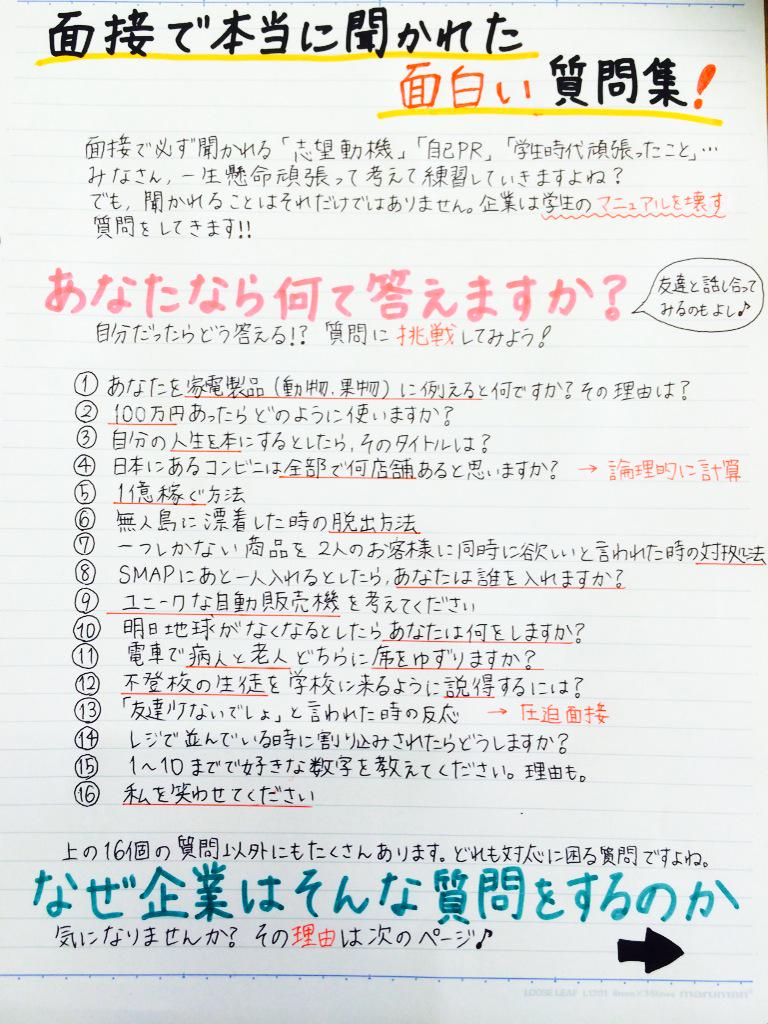 面接で本当に聞かれた
面白い質問集!
面接で必ず聞かれる「志望動機」「自己PR」「学生時代頑張ったこと」…
みなさん,一生懸命頑張って考えて練習していきますよね?
でも,聞かれることはそれだけではありません。企業は学生のマニュアルを壊す
質問をしてきます!!
あなたなら何て答えますか?
友達と話し合って
みるのもよし♪
自分だったらどう答える!? 質問に挑戦してみよう!
① あなたを家電製品(動物,果物)に例えると何ですか?その理由は?
② 100万円あったらどのように使いますか?
③ 自分の人生を本にするとしたら,そのタイトルは?
④ 日本にあるコンビニは全部で何店舗あると思いますか? → 論理的に計算
⑤ 1億稼ぐ方法
⑥ 無人島に漂着した時の脱出方法
⑦ 一つしかない商品を2人のお客様に同時に欲しいと言われた時の対処法
⑧ SMAPにあと一人入れるとしたら,あなたは誰を入れますか?
⑨ ユニークな自動販売機を考えてください
⑩ 明日地球がなくなるとしたらあなたは何をしますか?
⑪ 電車で病人と老人どちらに席をゆずりますか?
⑫ 不登校の生徒を学校に来るように説得するには?
⑬ 「友達少ないでしょ」と言われた時の反応 → 圧迫面接
⑭ レジで並んでいる時に割り込みされたらどうしますか?
⑮ 1〜10までで好きな数字を教えてください。理由も。
⑯ 私を笑わせてください
上の16個の質問以外にもたくさんあります。どれも対応に困る質問ですよね。
なぜ企業はそんな質問をするのか
気になりませんか? その理由は次のページ♪
LOOSE LEAF L1201 6mm×36lines maruman